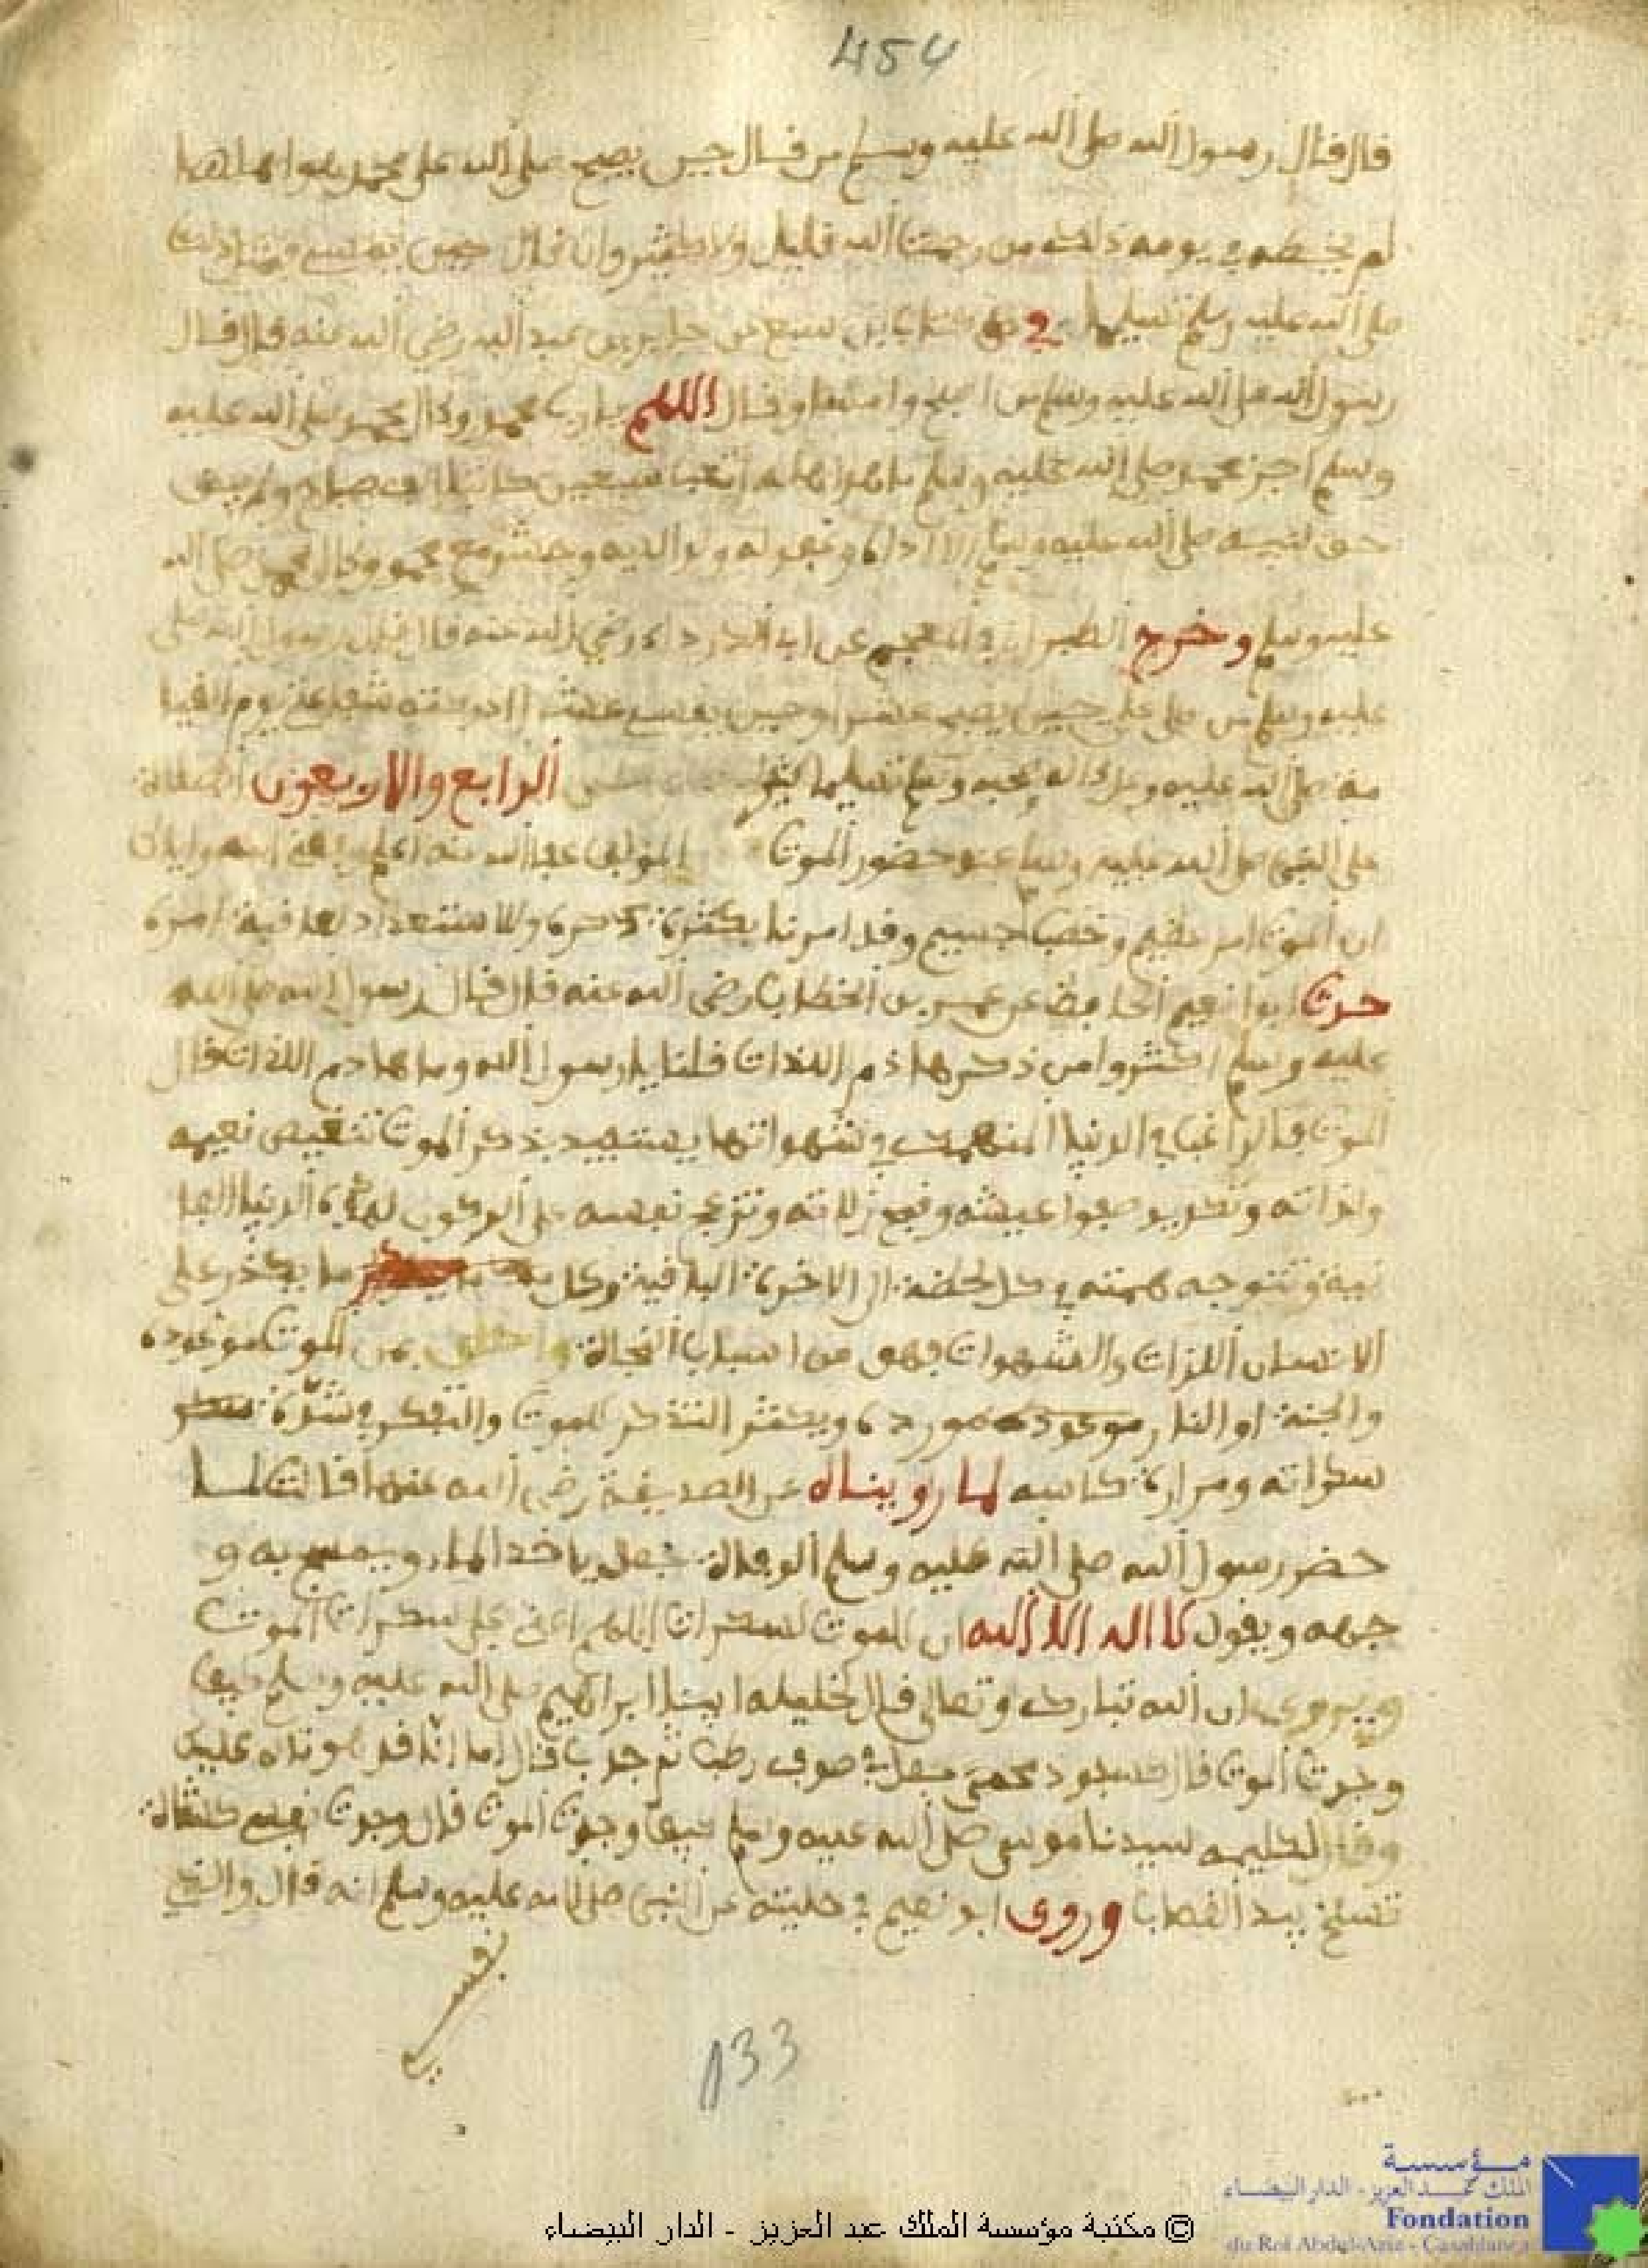 454
قال قال رسول الله صلى الله عليه وسلم من قال حين يصبح صلى الله على محمد
لم يخطه في يومه ذلك من رحمت الله قليل ولا كثير وان قال حين يمسي ومثل ذلك
صلى الله عليه وسلم تسليما وفي كتاب ابن سبع عن جابر بن عبد الله رضي الله عنه قال قال
رسول الله صلى الله عليه وسلم من اصبح وامسا وقال اللهم يا رب محمد وءال محمد صلى الله عليه
وسلم اجز محمد صلى الله عليه وسلم ما هو اهله اتعب سبعين كاتبا الف صباح ولم يبق
حق لنبيه صلى الله عليه وسلم الا اداه وغفر له ولوالديه وحشر مع محمد وءال محمد صلى الله
عليه وسلم وخرج الطبراني في المعجم عن ابي الدرداء رضي الله عنه قال قال رسول الله صلى
عليه وسلم من صلى علي حين يصبح عشرا وحين يمسي عشرا ادركته شفاعتي يوم القيا
مة صلى الله عليه وعلى ءاله وصحبه وسلم تسليما الرابع والاربعون الصلاة
على النبي صلى الله عليه وسلم عند حضور الموت المؤلف عفا الله عنه اعلم
ان الموت امر عظيم وخطب جسيم وقد امرنا بكثرة ذكره والاستعداد لعاقبة امره
حدث ابوا نعيم الحافظ عن عمر بن الخطاب رضي الله عنه قال قال رسول الله صلى الله
عليه وسلم اكثروا من ذكر هاذم اللذات قلنا يا رسول الله وما هادم اللذات قال
الموت فالراغب في الدنيا المنهمك في شهواتها يستفيد بذكر الموت تنغيص نعيمه
ولذاته وتكدير صفوا عيشه وقبح زلاته وتنزعج نفسه على الركون لهذه الدنيا الفا
نية وتتوجه همته في كل لحظة الى الاخرة الباقية وكل ما يكدر على
الانسان اللذات والشهوات فهو من اسباب النجاة فمن الموت موعده
والجنة او النار مورده ويكثر التذكر للموت والتفكر في شدة
سكراته ومرارة كاسه لما رويناه عن الصديقة رضي الله عنها قالت لما
حضر رسول الله صلى الله عليه وسلم الوفاة جعل ياخذ الماء ويمسح به و
جهه ويقول لا اله الا الله ان للموت لسكرات اللهم اعني على سكرات الموت
ويروى ان الله تبارك وتعالى قال لخليله ابينا ابراهيم صلى الله عليه وسلم كيف
وجدت الموت قال كسفود محمى جعل في صوف رطب ثم جذب قال اما انا قد هوناه عليك
وقال لكليمه سيدنا موسى صلى الله عليه وسلم كيف وجدت الموت قال وجدت نفسي كشاة
تسلخ بيد القصاب وروى ابو نعيم في حليته عن النبي صلى الله عليه وسلم انه قال والذي
نفسي
133
مؤسسة
الملك عبد العزيز - الدار البيضاء
Fondation
du Roi Abdul-Aziz - Casablanca
© مكتبة مؤسسة الملك عبد العزيز - الدار البيضاء